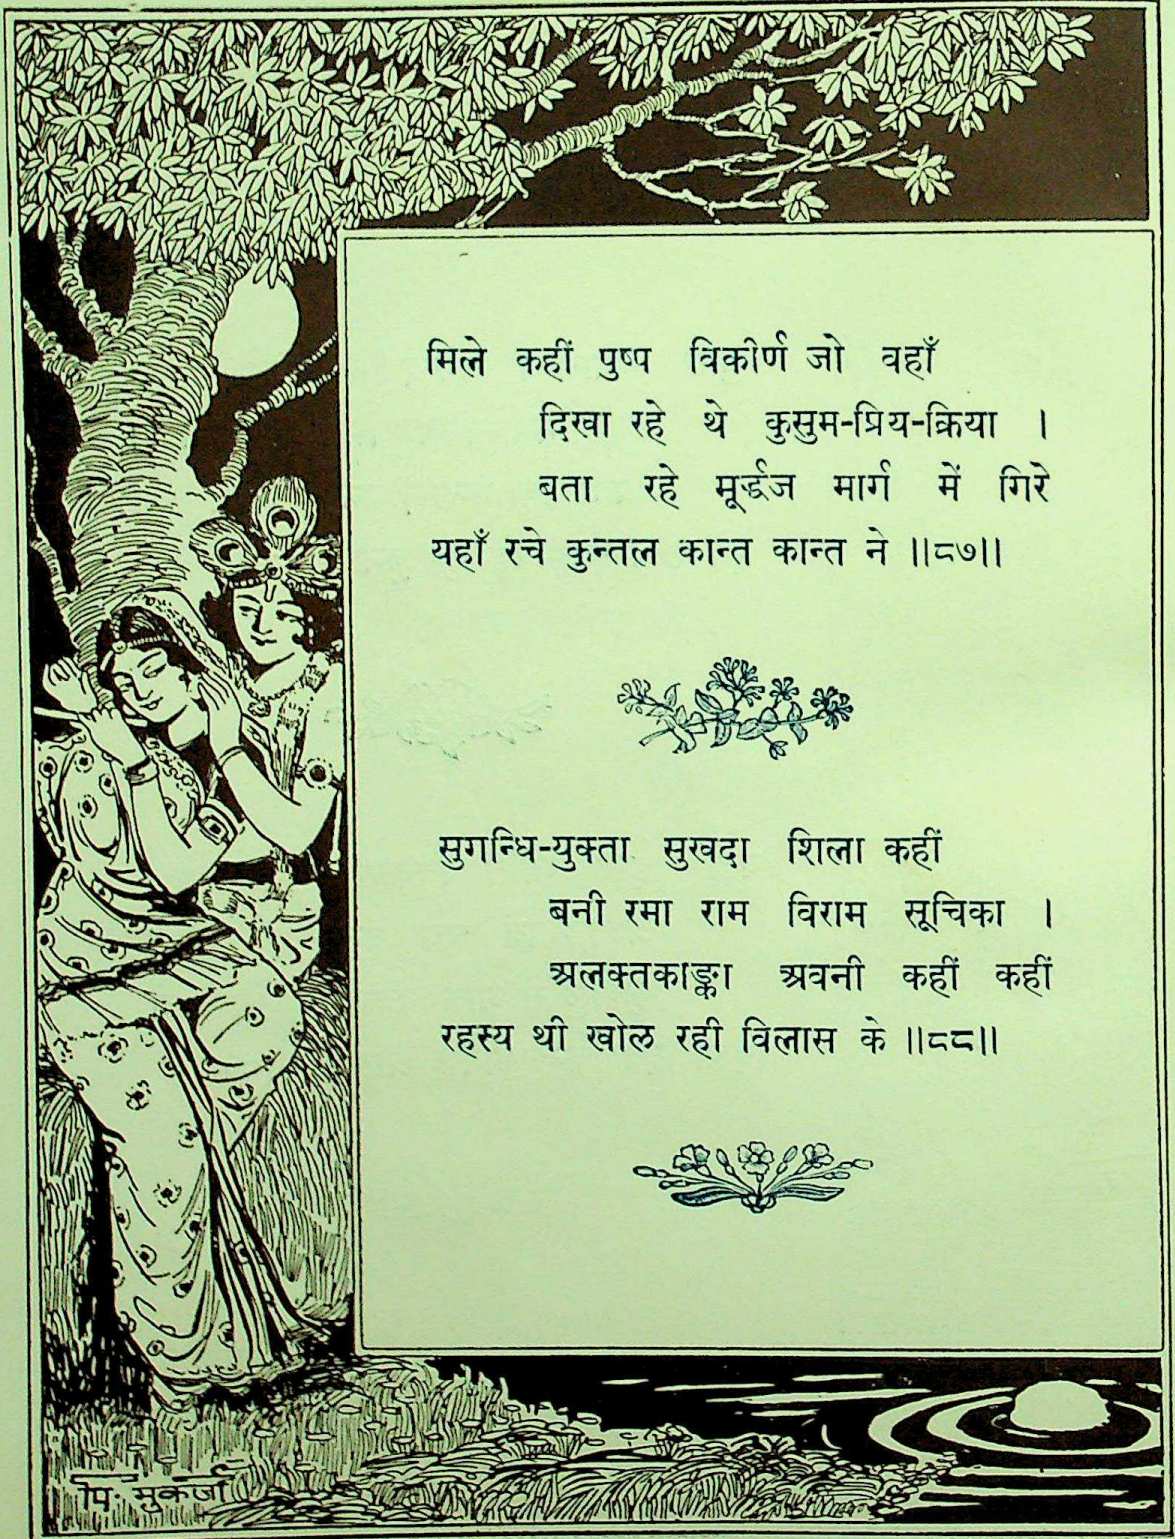 मिले कहीं पुष्प विकीर्ण जो वहाँ
दिखा रहे थे कुसुम-प्रिय-क्रिया ।
बता रहे मूर्द्धज मार्ग में गिरे
यहाँ रचे कुन्तल कान्त कान्त ने ॥८७॥
सुगन्धि-युक्ता सुखदा शिला कहीं
बनी रमा राम विराम सूचिका ।
अलक्तकाङ्का अवनी कहीं कहीं
रहस्य थी खोल रही विलास के ॥८८॥
पि. मुकर्जी